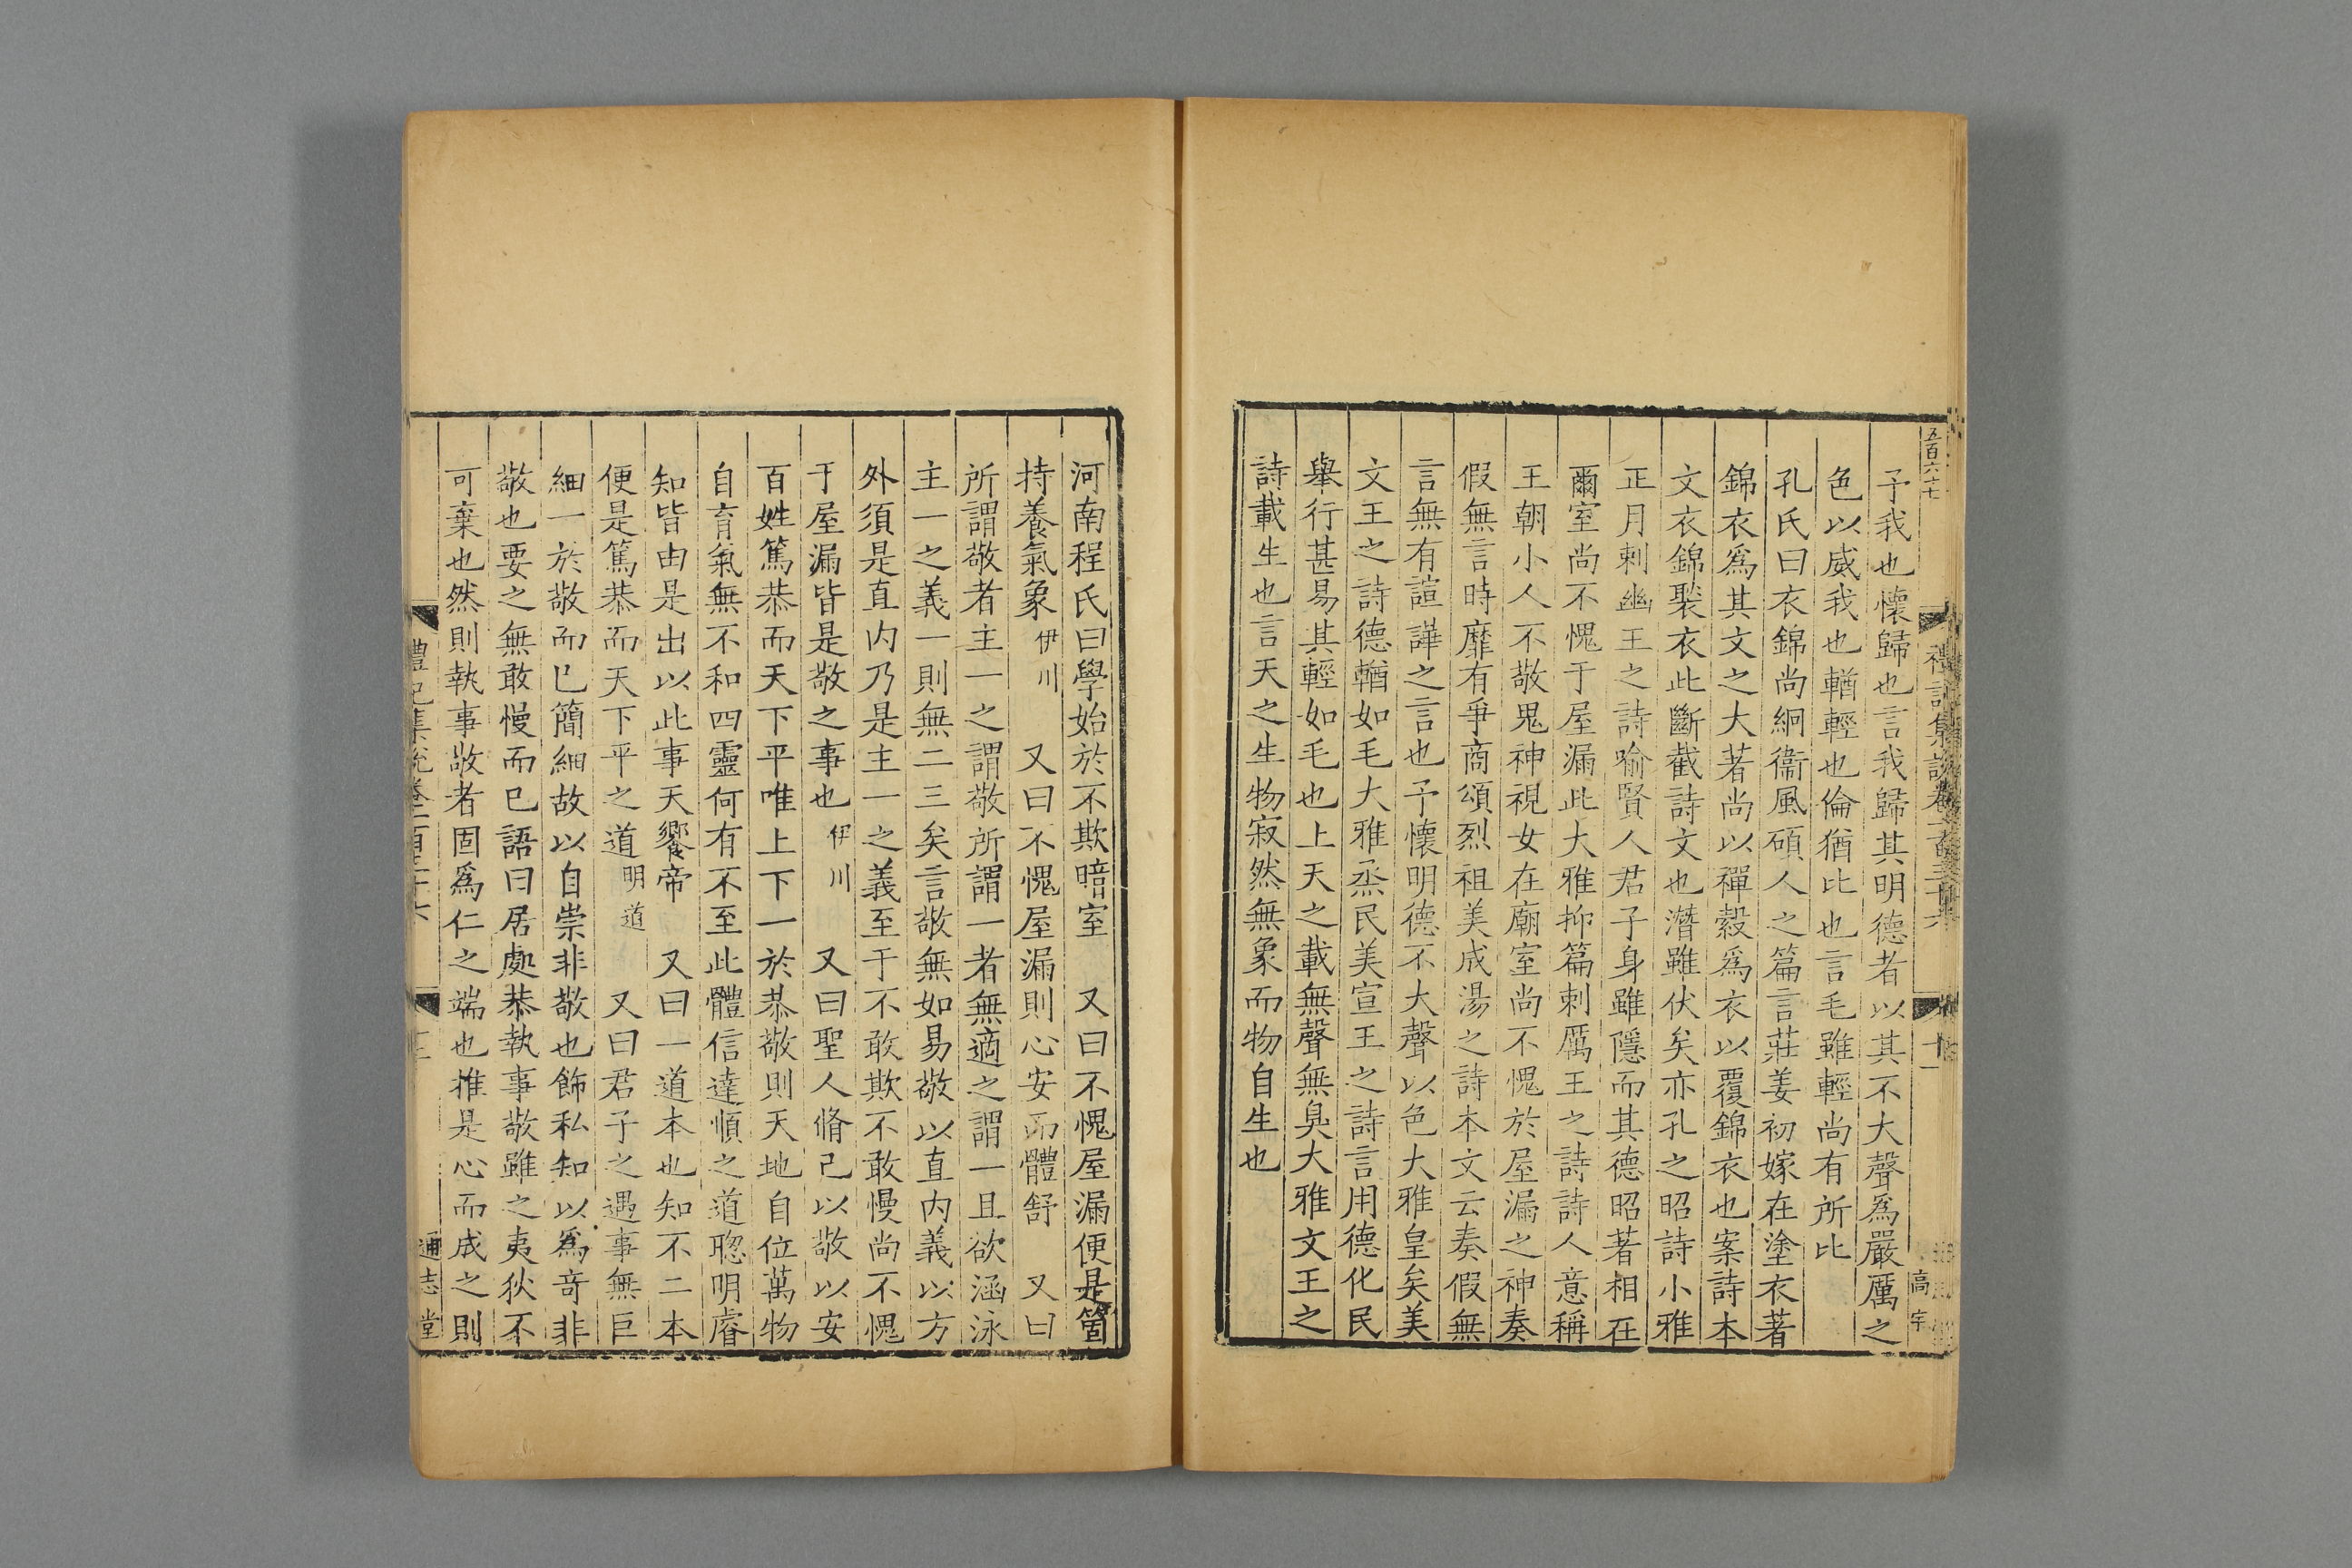 五百六十七
予我也懷歸也言我歸其明德者以其不大聲爲嚴厲之
色以威我也輶輕也倫猶比也言毛雖輕尚有所比
孔氏曰衣錦尚絅衞風碩人之篇言莊姜初嫁在塗衣著
錦衣爲其文之大著尚以襌縠爲衣以覆錦衣也案詩本
文衣錦褧衣此斷截詩文也潛雖伏矣亦孔之昭詩小雅
正月刺幽王之詩喻賢人君子身雖隱而其德昭著相在
爾室尚不愧于屋漏此大雅抑篇刺厲王之詩詩人意稱
王朝小人不敬鬼神視女在廟室尚不愧於屋漏之神奏
假無言時靡有爭商頌烈祖美成湯之詩本文云奏假無
言無有諠譁之言也予懷明德不大聲以色大雅皇矣美
文王之詩德輶如毛大雅烝民美宣王之詩言用德化民
舉行甚易其輕如毛也上天之載無聲無臭大雅文王之
詩載生也言天之生物寂然無象而物自生也
河南程氏曰學始於不欺暗室 又曰不愧屋漏便是箇
持養氣象伊川 又曰不愧屋漏則心安而體舒 又曰
所謂敬者主一之謂敬所謂一者無適之謂一且欲涵泳
主一之義一則無二三矣言敬無如易敬以直内義以方
外須是直内乃是主一之義至于不敢欺不敢慢尚不愧
于屋漏皆是敬之事也伊川 又曰聖人脩己以敬以安
百姓篤恭而天下平唯上下一於恭敬則天地自位萬物
自育氣無不和四靈何有不至此體信達順之道聦明睿
知皆由是出以此事天饗帝 又曰一道本也知不二本
便是篤恭而天下平之道明道 又曰君子之遇事無巨
細一於敬而已簡細故以自崇非敬也飾私知以爲竒非
敬也要之無敢慢而已語曰居處恭執事敬雖之夷狄不
可棄也然則執事敬者固爲仁之端也推是心而成之則
通志堂